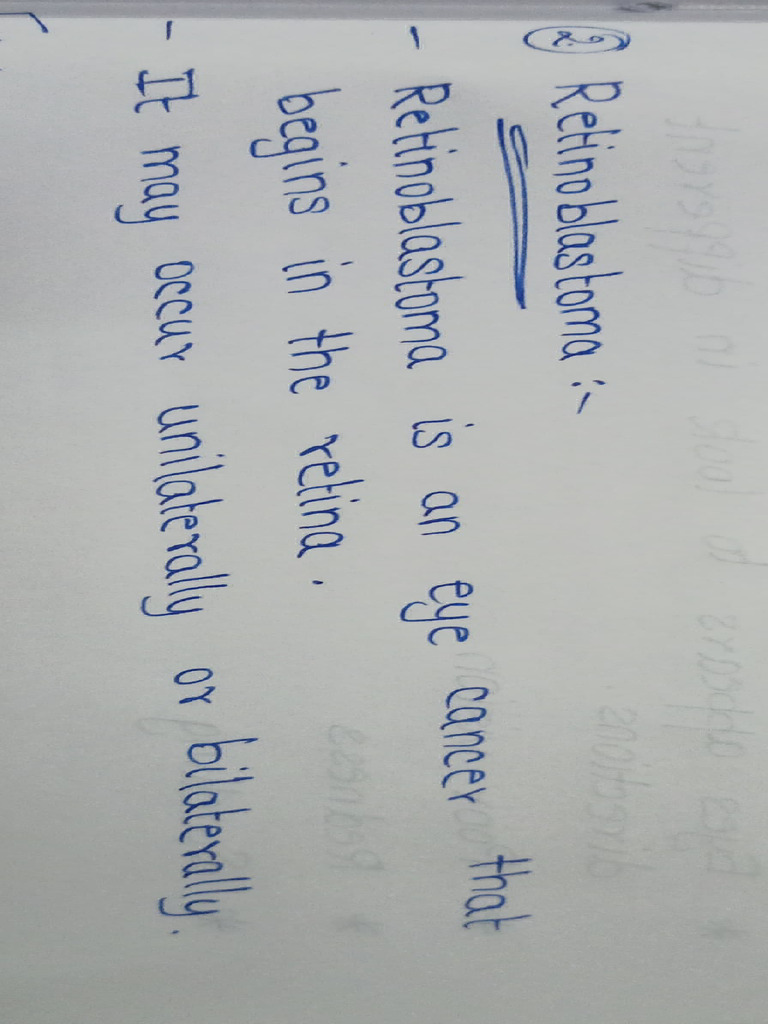 ② Retinoblastoma :-
- Retinoblastoma is an eye cancer that
begins in the retina.
- It may occur unilaterally or bilaterally.